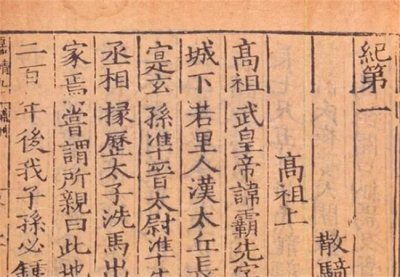 紀第一
散騎
髙祖上
髙祖武皇帝諱霸先字
城下若里人漢太丘長
寔玄孫准晉太尉准生
丞相掾歷太子洗馬出
家焉嘗謂所親曰此地
二百年後我子孫必鍾
嘉靖九